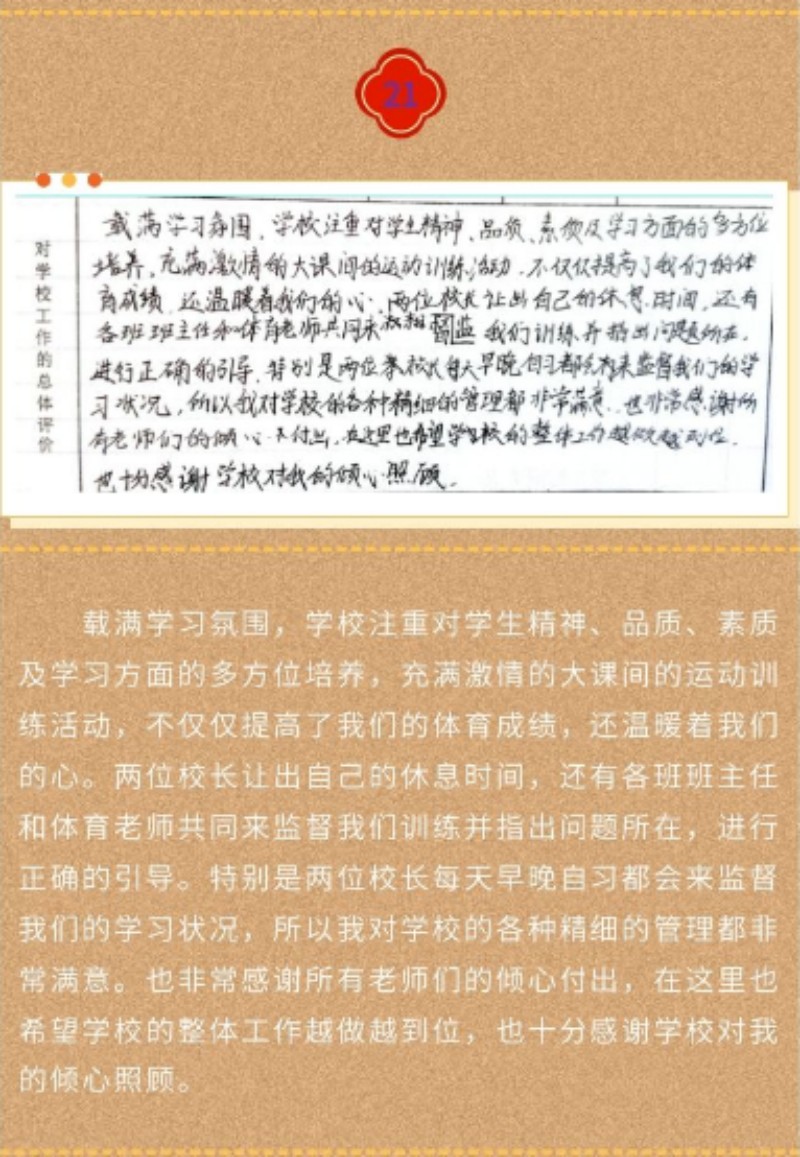 21
对学校工作的总体评价
载满学习氛围，学校注重对学生精神、品质、素质及学习方面的多方位
培养，充满激情的大课间的运动训练活动，不仅仅提高了我们的体
育成绩，还温暖着我们的心。两位校长让出自己的休息时间，还有
各班班主任和体育老师共同来 我们训练并指出问题所在，
进行正确的引导。特别是两位 校长每天早晚自习都会来监督我们的学
习状况，所以我对学校的各种精细的管理都非常满意。也非常感谢所
有老师们的倾心 付出，在这里也希望学校的整体工作越做越到位，
也十分感谢学校对我的倾心照顾。
载满学习氛围，学校注重对学生精神、品质、素质
及学习方面的多方位培养，充满激情的大课间的运动训
练活动，不仅仅提高了我们的体育成绩，还温暖着我们
的心。两位校长让出自己的休息时间，还有各班班主任
和体育老师共同来监督我们训练并指出问题所在，进行
正确的引导。特别是两位校长每天早晚自习都会来监督
我们的学习状况，所以我对学校的各种精细的管理都非
常满意。也非常感谢所有老师们的倾心付出，在这里也
希望学校的整体工作越做越到位，也十分感谢学校对我
的倾心照顾。